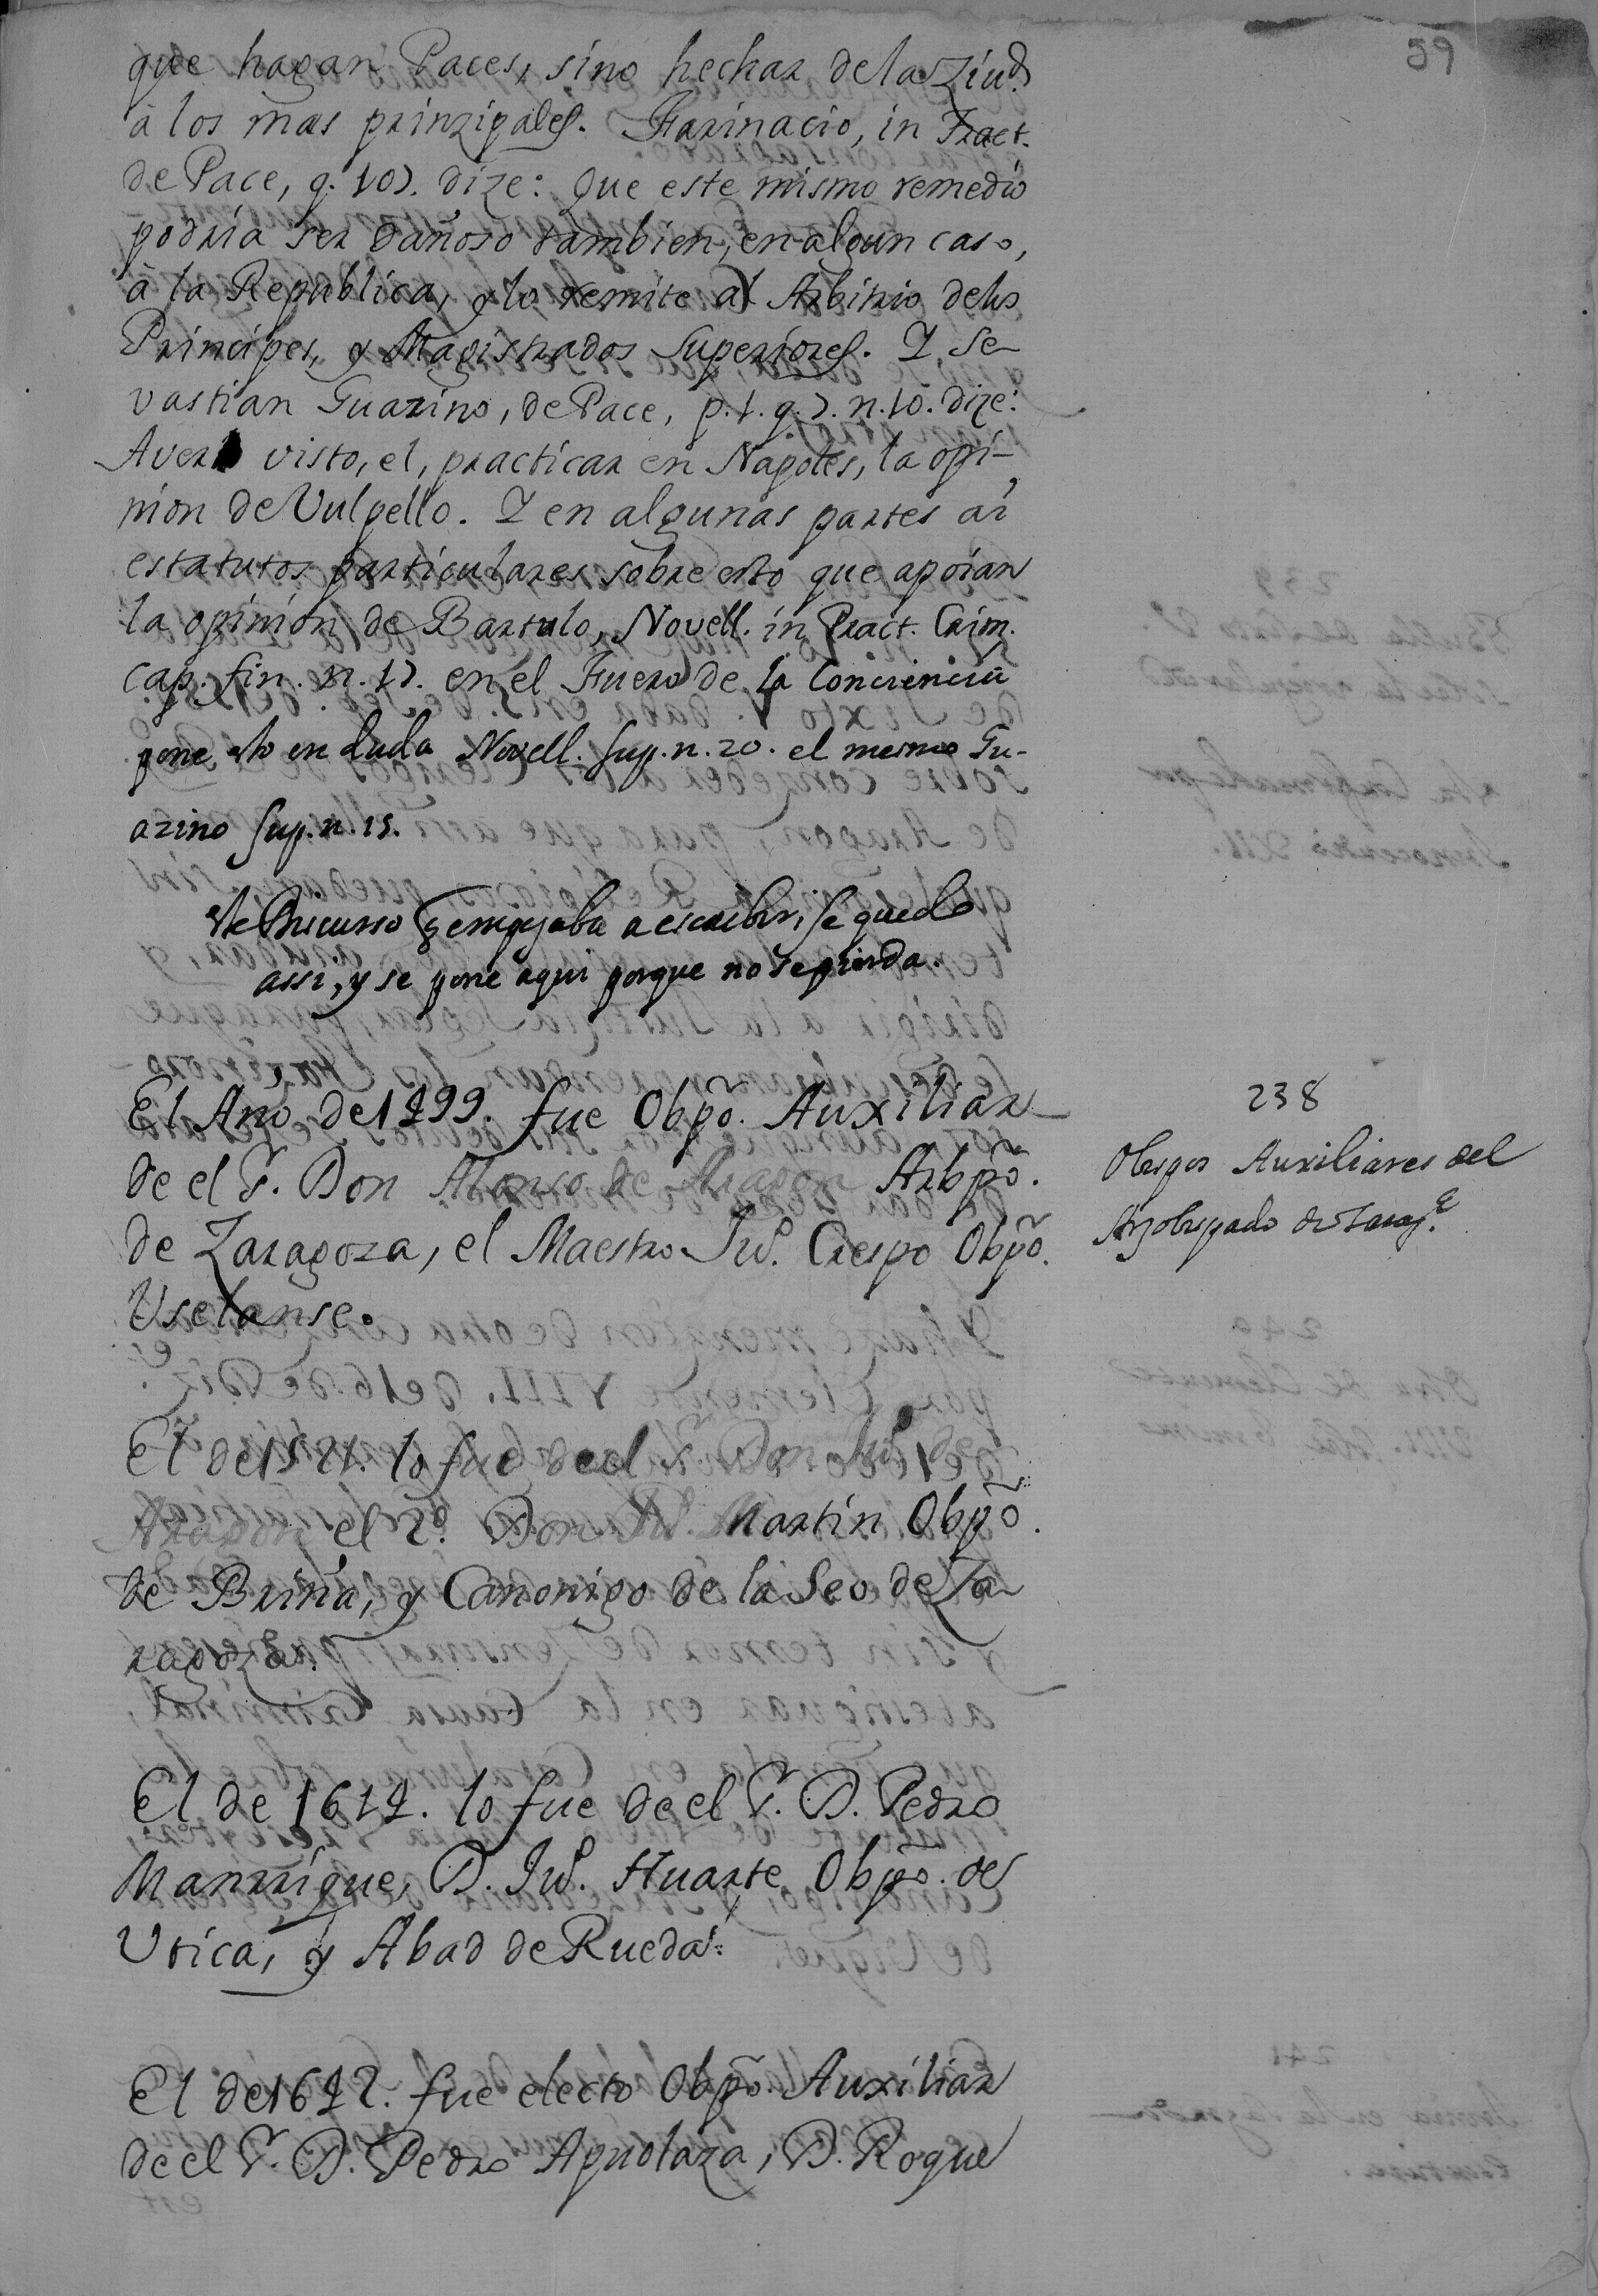 59
que hagan Paces, sino hechar de la Ziud.
à los mas prinzipales. Farinacio, in Tract.
de Pace, q. 107. dize: Que este mismo remedio
podria ser dañoso tambien, en algun caso,
à la Republica, y lo remite al Arbitrio delos
Principes, y Magistrados Superiores. Y Se-
vastian Guazino, de Pace, p. 1. q. 7. n. 10. dize:
Aver visto, el, practicar en Napoles, la opi-
nion de Vulpello. Y en algunas partes ai
estatutos particulares sobre esto que apoian
la opinion de Bartulo, Novell. in Pract. Crim.
cap. fin. n. 17. en el Fuero de la Conciencia
pone esto en duda Novell. sup. n. 20. el mesmo Gu-
azino sup. n. 15.
Este Discurso q empezaba a escribir, se quedo
assi, y se pone aqui porque no se pierda.
El Año de 1499. fue Obpõ. Auxiliar
de el S.r Don Alonso de Aragon Arbpõ.
de Zaragoza, el Maestro Ju.o Crespo Obpõ.
Uselanse.
238
Obispos Auxiliares del
Arzobispado de Zarag.a
El de 1521. lo fue de el S.r Don Ju.o de
Aragon el 2.o Don Ju.o Martin Obpõ.
de Briña, y Canonigo de la Seo de Za
ragoza.
El de 1614. lo fue de el S.r D. Pedro
Manrrique, D. Ju.o Huarte Obpõ. de
Utica, y Abad de Rueda.
El de 1642. fue electo Obpõ. Auxiliar
de el S.r D. Pedro Apaolaza, D. Roque